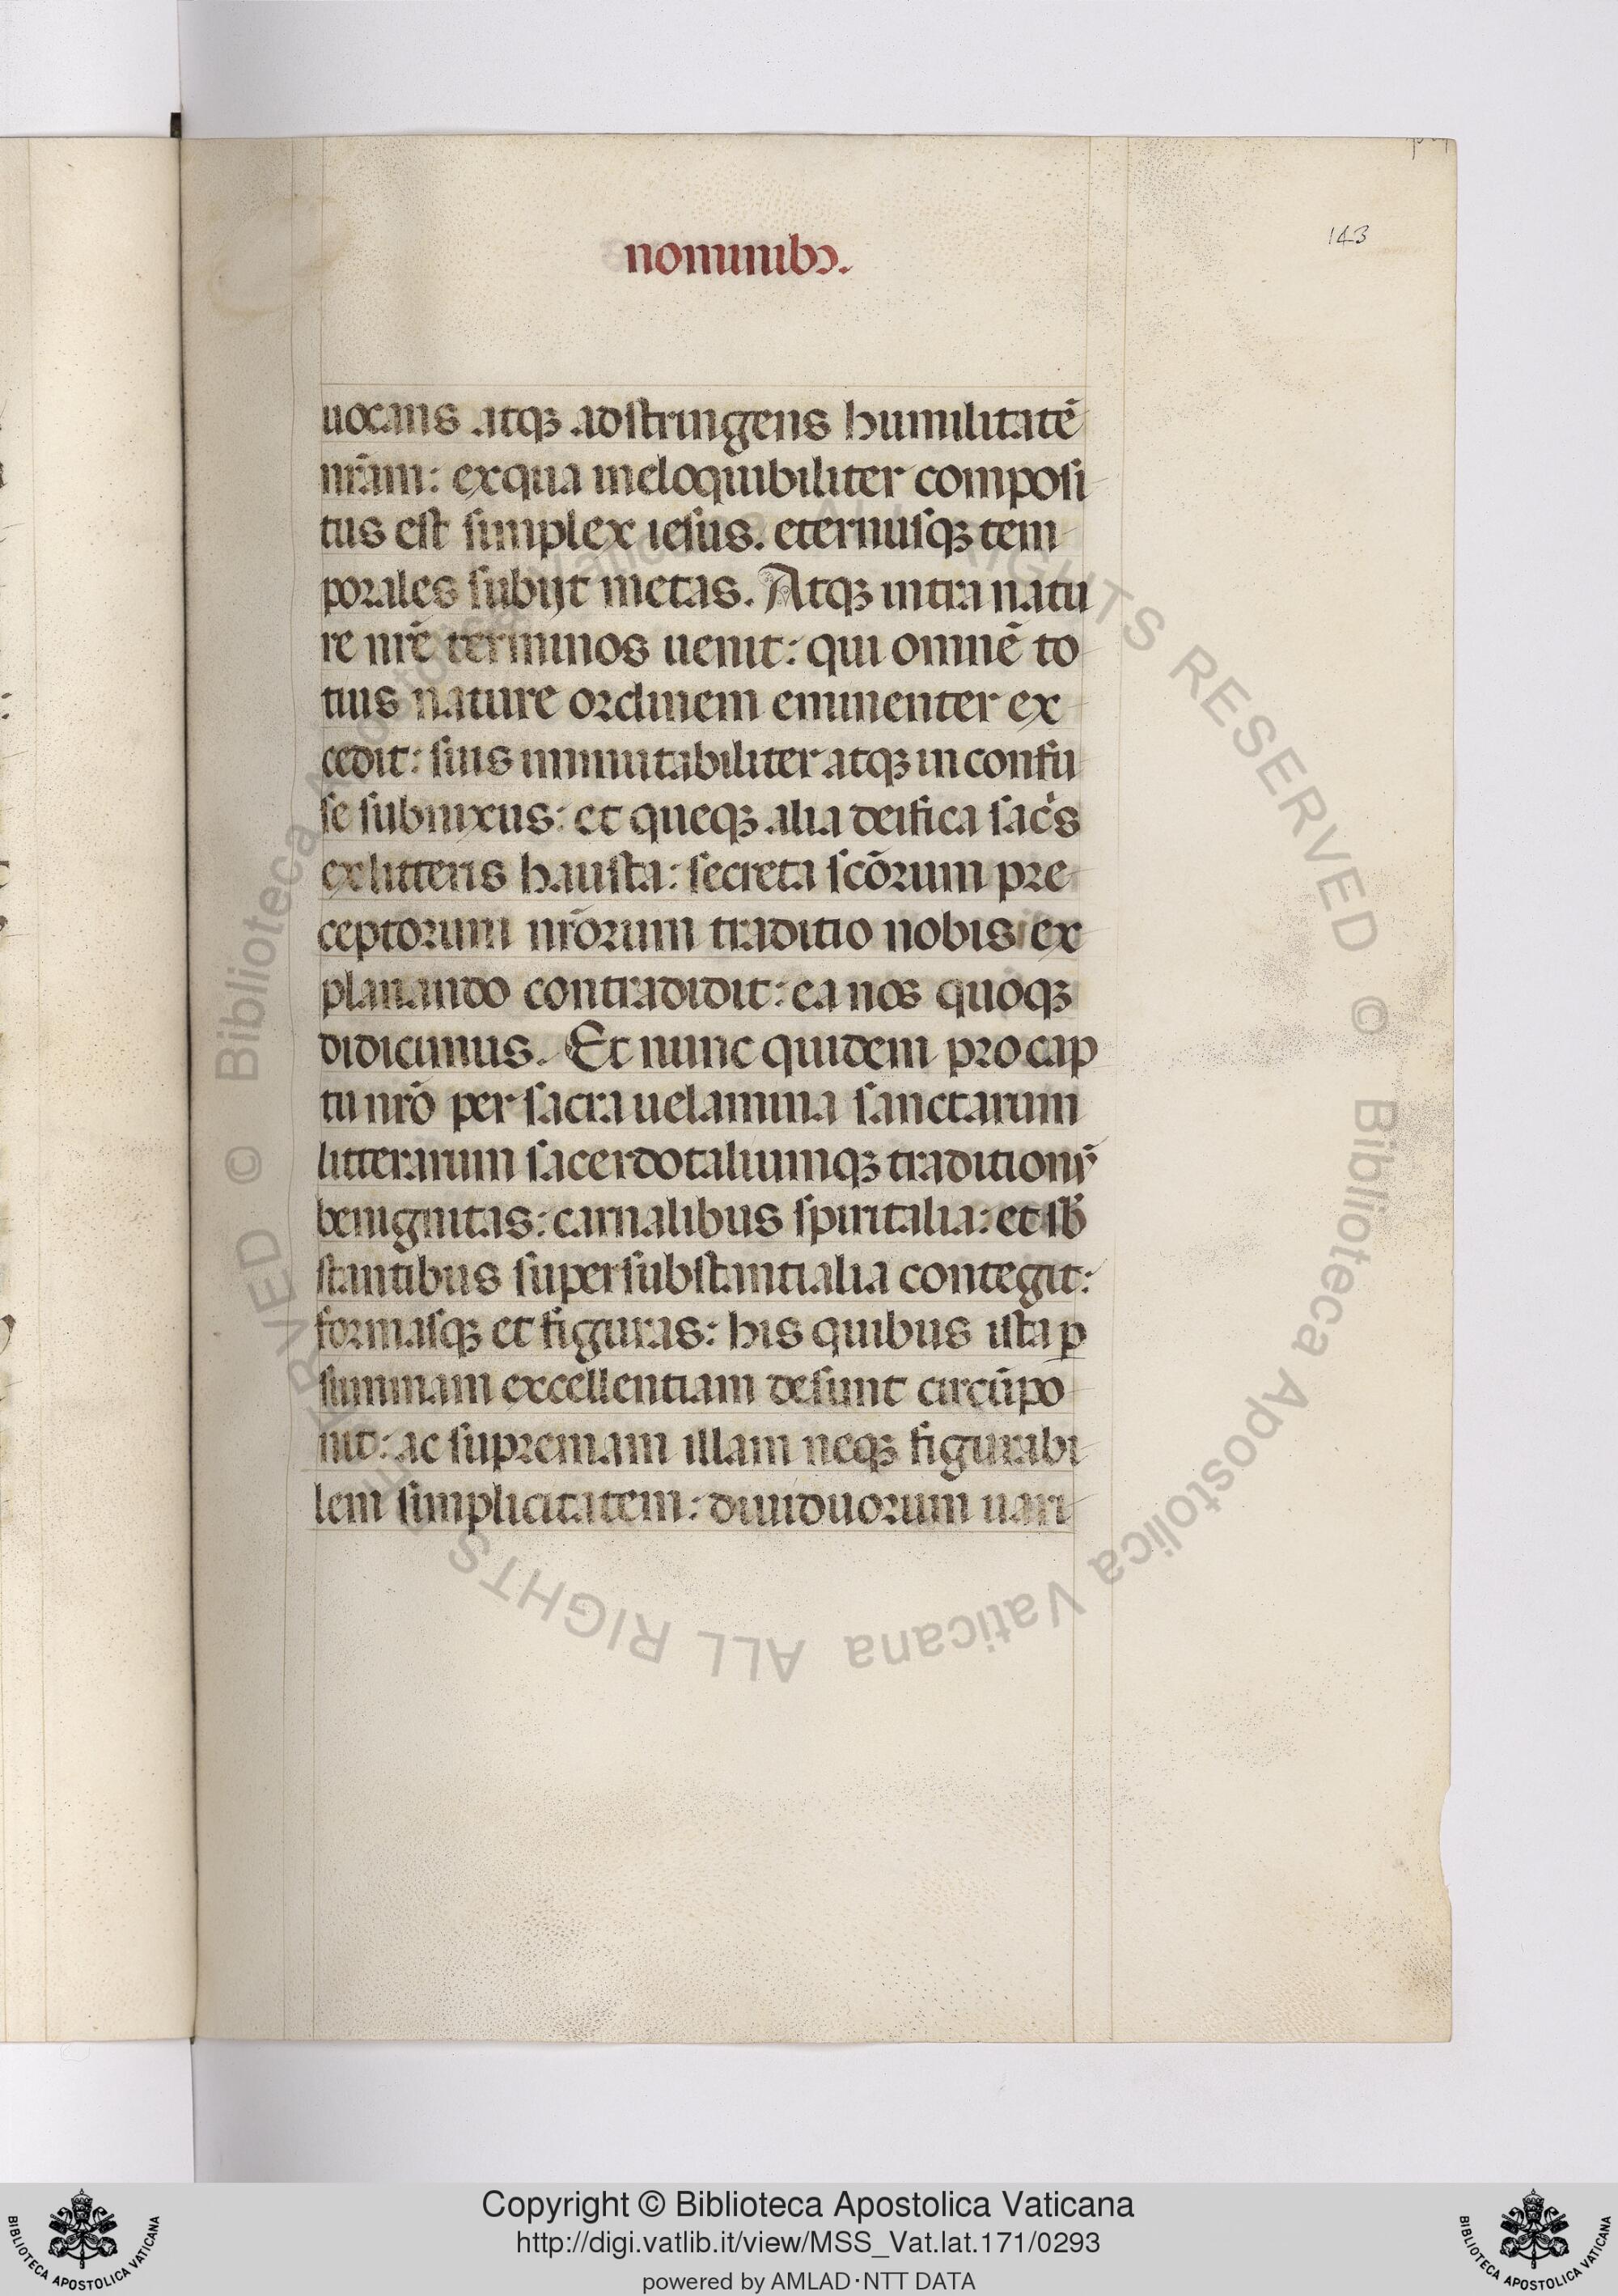 143
nominibꝯ.
uocans atqꝫ adstringens humilitatē
nr̄am: exqua ineloquibiliter composi
tus est simplex iesus. eternusqꝫ tem
porales subijt metas. Atqꝫ intra natu
re nr̄e terminos uenit: qui omnē to
tius nature ordinem eminenter ex
cedit: suis inmutabiliter atqꝫ in confu
se subnixus: et queqꝫ alia deifica sac̄s
exlitteris hausta: secreta sc̄orum pre
ceptorum nr̄orum traditio nobis ex
planando contradidit: ea nos quoqꝫ
didicimus. Et nunc quidem pro cap
tu nr̄o per sacra uelamina sanctarum
litterarum sacerdotaliumqꝫ traditionū
benignitas: carnalibus spiritalia: et sb̄
stantibus supersubstantialia contegit:
formasqꝫ et figuras: his quibus ista ꝑ
summam excellentiam desunt circūpo
nit: ac supremam illam neqꝫ figurabi
lem simplicitatem: diuiduorum uari
© Biblioteca Apostolica Vaticana ALL RIGHTS RESERVED
© Biblioteca Apostolica Vaticana ALL RIGHTS RESERVED
Copyright © Biblioteca Apostolica Vaticana
http://digi.vatlib.it/view/MSS_Vat.lat.171/0293
powered by AMLAD·NTT DATA
BIBLIOTECA APOSTOLICA VATICANA
BIBLIOTECA APOSTOLICA VATICANA